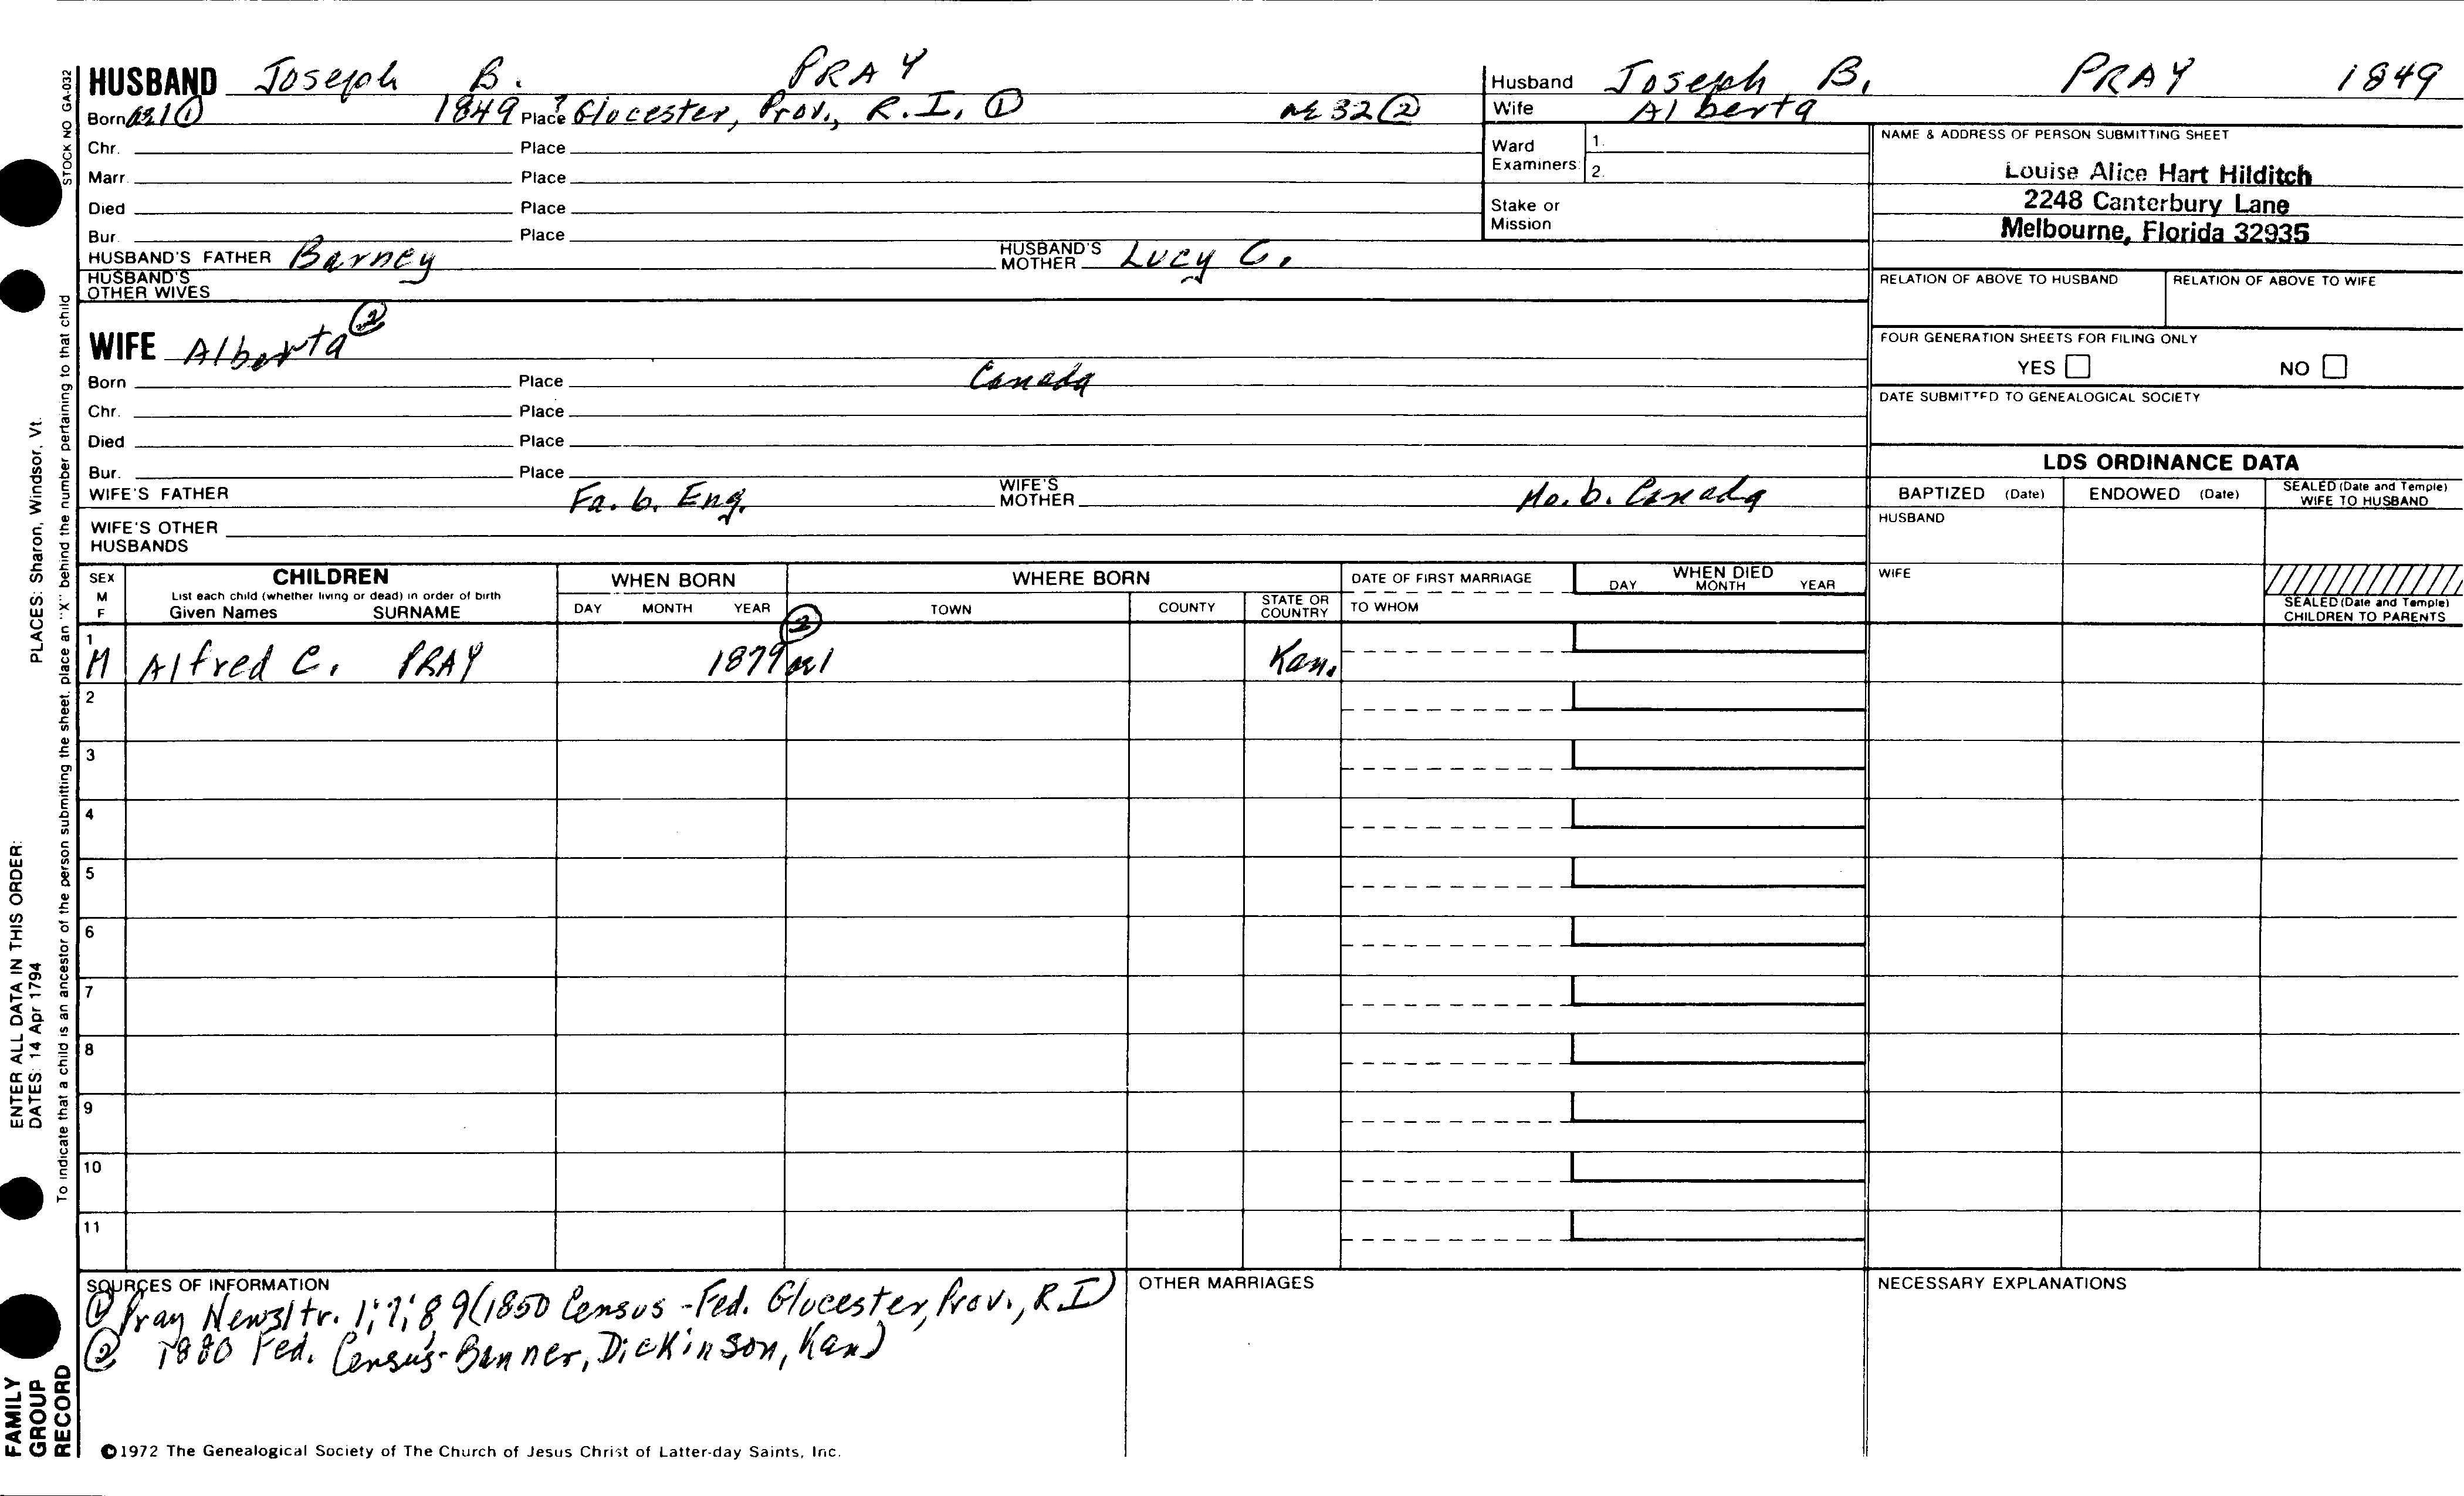 HUSBAND Joseph B. PRAY
Born æ 1 ① 1849 Place ? Glocester, Prov., R.I. ① æ 32 ②
Chr. Place
Marr. Place
Died Place
Bur. Place
HUSBAND'S FATHER Barney HUSBAND'S MOTHER Lucy C.
HUSBAND'S OTHER WIVES
WIFE Alberta ②
Born Place Canada
Chr. Place
Died Place
Bur. Place
WIFE'S FATHER Fa. b. Eng. WIFE'S MOTHER Mo. b. Canada
WIFE'S OTHER HUSBANDS
Husband Joseph B. PRAY 1849
Wife Alberta
Ward Examiners: 1.
2.
Stake or Mission
NAME & ADDRESS OF PERSON SUBMITTING SHEET
Louise Alice Hart Hilditch
2248 Canterbury Lane
Melbourne, Florida 32935
RELATION OF ABOVE TO HUSBAND RELATION OF ABOVE TO WIFE
FOUR GENERATION SHEETS FOR FILING ONLY
YES NO
DATE SUBMITTED TO GENEALOGICAL SOCIETY
LDS ORDINANCE DATA
BAPTIZED (Date) ENDOWED (Date) SEALED (Date and Temple) WIFE TO HUSBAND
HUSBAND
WIFE
SEALED (Date and Temple) CHILDREN TO PARENTS
SEX M F CHILDREN WHEN BORN WHERE BORN DATE OF FIRST MARRIAGE WHEN DIED
List each child (whether living or dead) in order of birth
Given Names SURNAME DAY MONTH YEAR TOWN COUNTY STATE OR COUNTRY TO WHOM DAY MONTH YEAR
1 M Alfred C. PRAY 1879 æ 1 ② Kan.
2
3
4
5
6
7
8
9
10
11
SOURCES OF INFORMATION
① Pray Newsltr. 1;1; 8 9 (1850 Census - Fed. Glocester, Prov., R.I)
② 1880 Fed. Census - Banner, Dickinson, Kan)
OTHER MARRIAGES
NECESSARY EXPLANATIONS
©1972 The Genealogical Society of The Church of Jesus Christ of Latter-day Saints, Inc.
STOCK NO GA-032
To indicate that a child is an ancestor of the person submitting the sheet, place an "X" behind the number pertaining to that child
ENTER ALL DATA IN THIS ORDER:
DATES: 14 Apr 1794 PLACES: Sharon, Windsor, Vt.
FAMILY
GROUP
RECORD